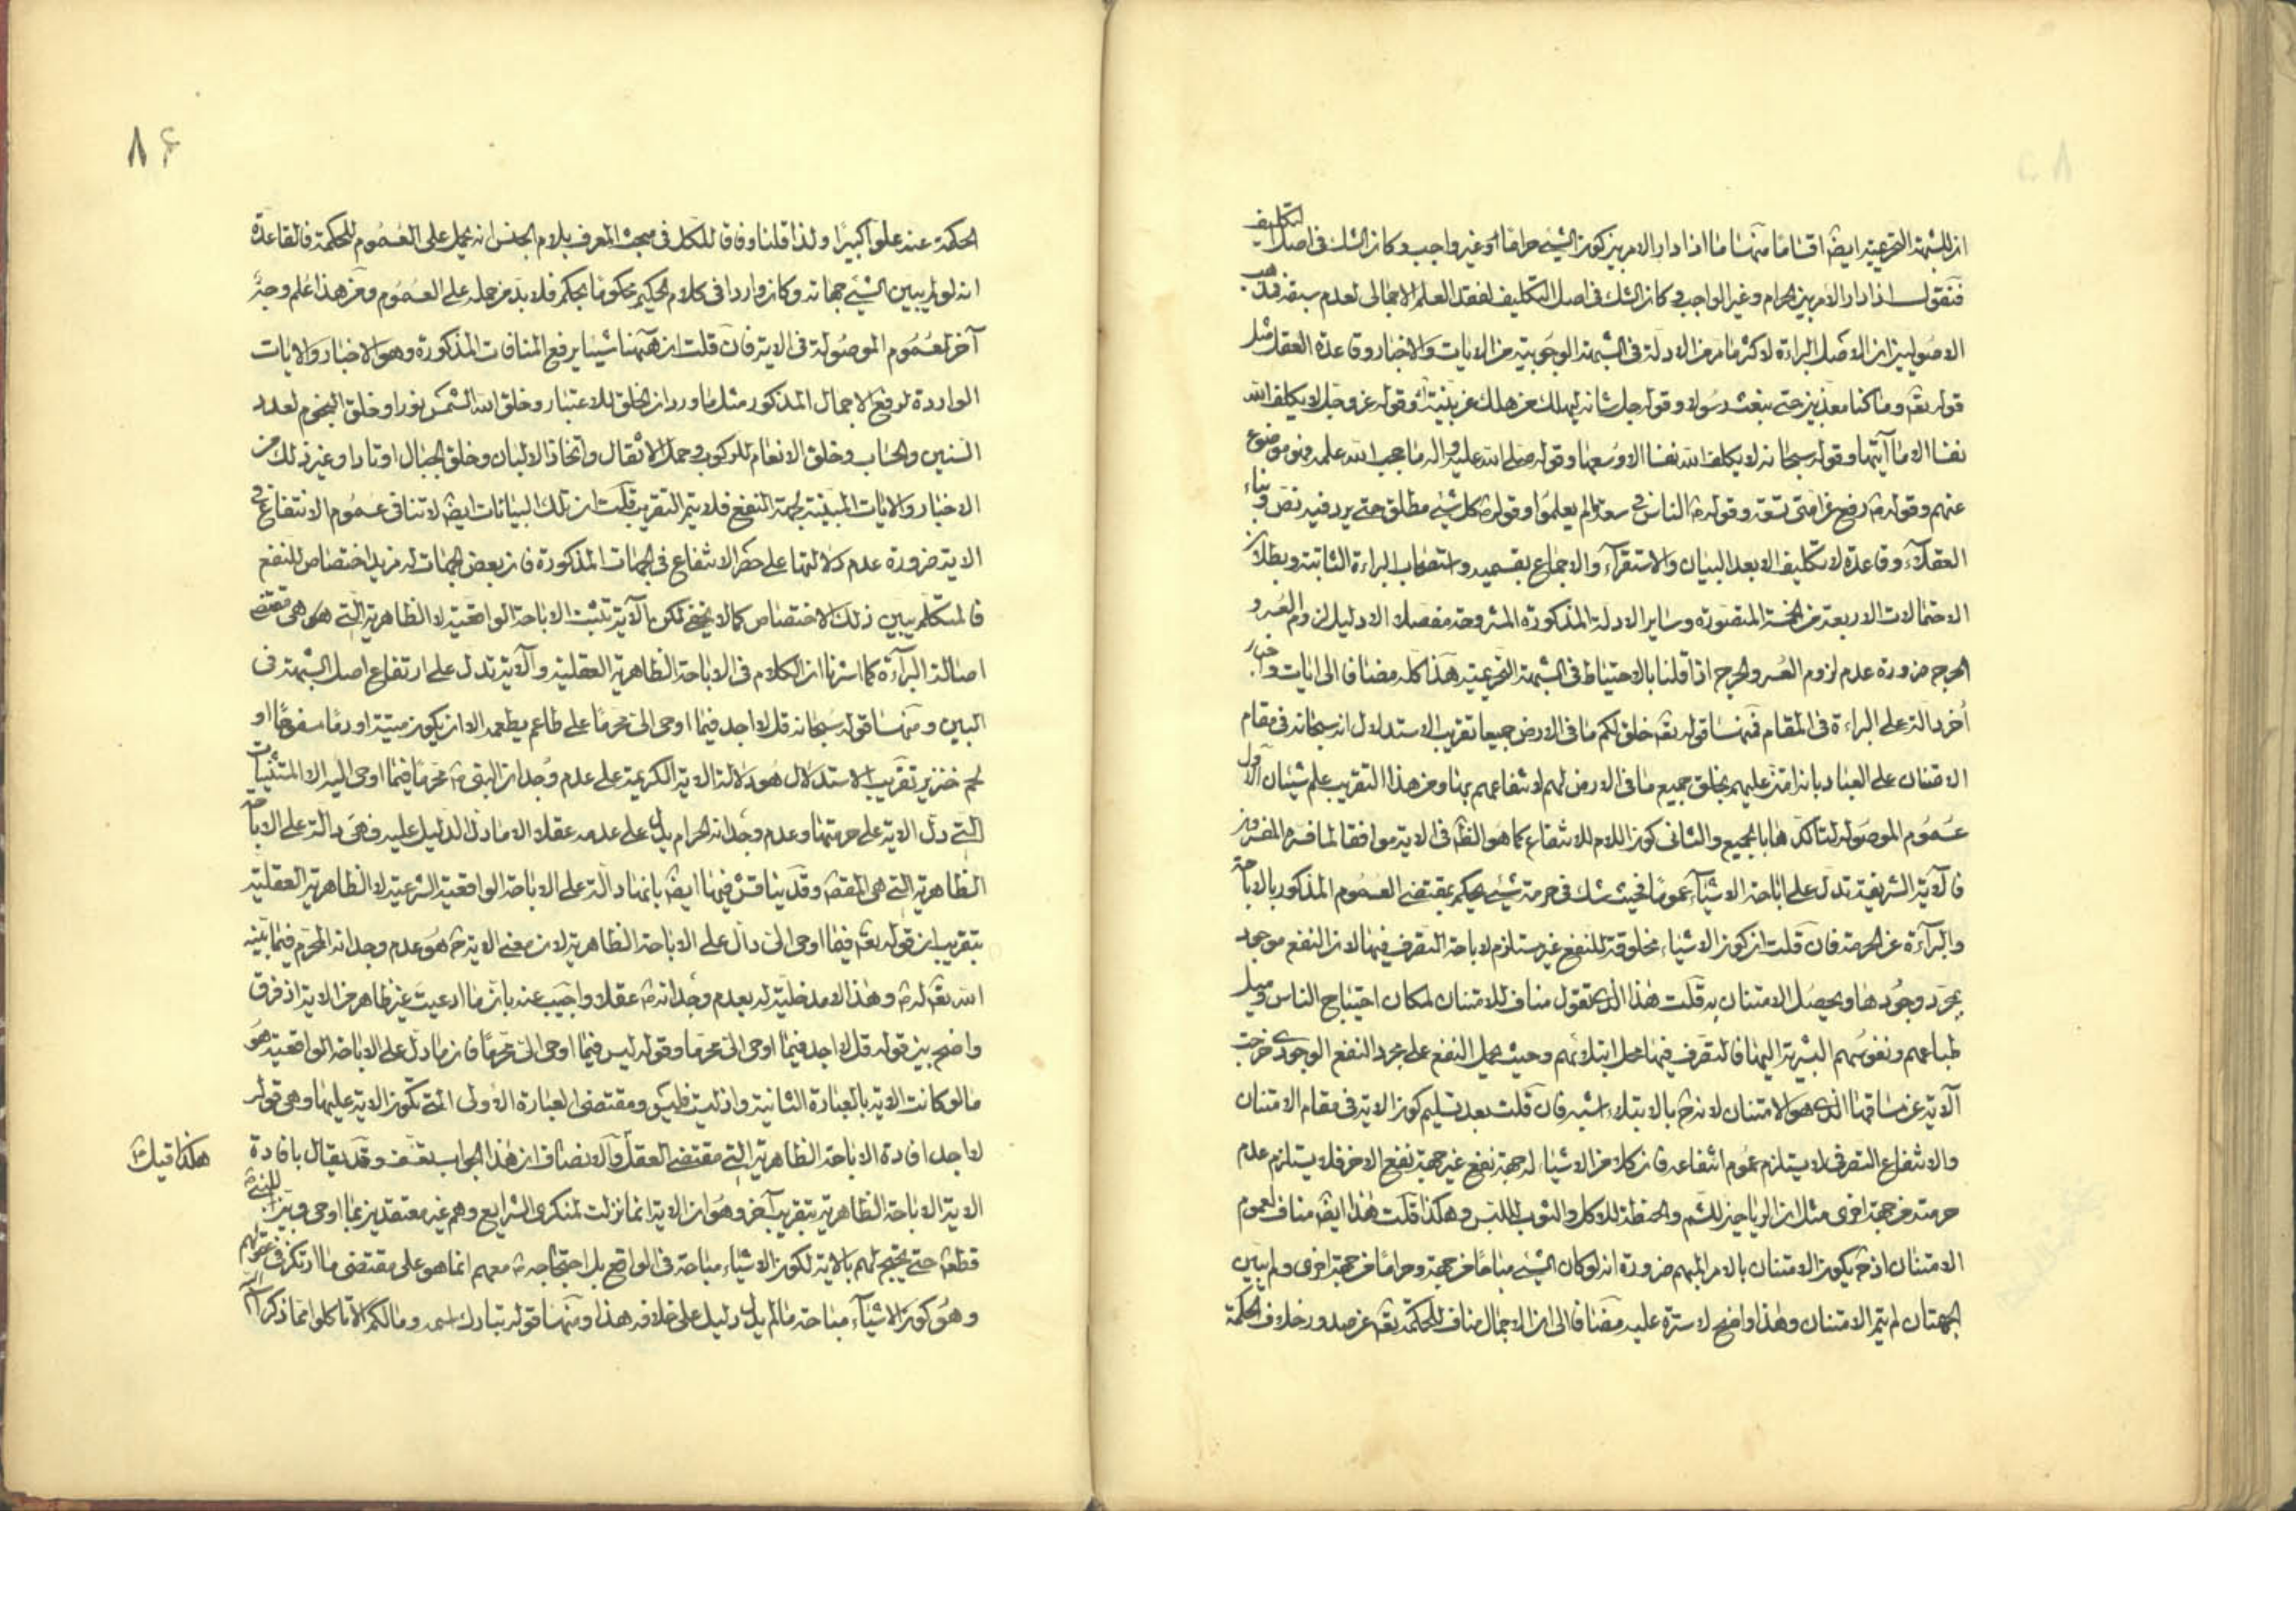 ان للشبهة التحريمية ايضا اقساما منها ما اذا دار الامر بين كون الشئ حراما او غير واجب وكان الشك فى اصل التكليف
فنقول اذا دار الامر بين الحرام وغير الواجب وكان الشك فى اصل التكليف لفقد العلم الاجمالى لعدم سبقه فمذهب
الاصوليين ان الاصل البراءة لاكثر ما مر من الادلة فى الشبهة الوجوبية من الايات والاخبار وقاعدة العقل مثل
قوله تعه وما كنا معذبين حتى نبعث رسولا وقوله جل شانه ليهلك من هلك عن بينة وقوله عز وجل لا يكلف الله
نفسا الا ما آتيها وقوله سبحانه لا يكلف الله نفسا الا وسعها وقوله صلى الله عليه واله ما حجب الله علمه فهو موضوع
عنهم وقوله رفع عن امتى تسعة وقوله الناس فى سعة ما لم يعلموا وقوله كل شئ مطلق حتى يرد فيه نص وبناء
العقلآء وقاعدة لا تكليف الا بعد البيان والاستقرآء والاجماع بقسميه واستصحاب البراءة الثابتة وبطلان
الاحتمالات الاربعة من الخمسة المتصورة وساير الادلة المذكورة المشروحة مفصلا الا دليل لزوم العسر و
الحرج ضرورة عدم لزوم العسر والحرج اذا قلنا بالاحتياط فى الشبهة التحريمية هذا كله مضافا الى ايات واخبار
أخر دالة على البراءة فى المقام فمنها قوله تعه خلق لكم ما فى الارض جميعا تقريب الاستدلال انه سبحانه فى مقام
الامتنان على العباد بانه امتن عليهم بخلق جميع ما فى الارض لهم لانتفاعهم بها ومن هذا التقريب علم شيئان الاول
عموم الموصوله لتاكدها بالجميع والثانى كون اللام للانتفاع كما هو الظه فى الاية موافقا لما فسره المفسرون
فالآية الشريفة تدل على اباحة الاشيآء عموما فحيث شك فى حرمة شئ يحكم بمقتضى العموم المذكور بالاباحة
والبرآءة عن الحرمة فان قلت ان كون الاشياء مخلوقة للنفع غير مستلزم لاباحة التصرف فيها لان النفع موجود
بمجرد وجودها ويحصل الامتنان به قلت هذا الذى تقول مناف للامتنان لمكان احتياج الناس وميل
طباعهم ونفوسهم البشرية اليها فالتصرف فيها محل ابتلائهم وحيث يحمل النفع على مجرد النفع الوجودى خرجت
الآية عن مساقها الذى هو الامتنان لانه بالابتلاء اشبه فان قلت بعد تسليم كون الاية فى مقام الامتنان
والانتفاع التصرفى لا يستلزم عموم انتفاعه فان كلا من الاشياء له جهة نفع غير جهة نفع الاخر فلا يستلزم عدم
حرمته من جهة اخرى مثل ان الرياحين للشم والحنطة للاكل والثوب للبس وهكذا قلت هذا ايضا مناف لعموم
الامتنان اذ ح يكون الامتنان بالامر المبهم ضرورة انه لو كان الشئ مباحا من جهة وحراما من جهة اخرى ولم يبين
الجهتان لم يتم الامتنان وهذا واضح لا سترة عليه مضافا الى ان الاجمال مناف للحكمة تعه عن صدور خلاف الحكمة
٨٤
الحكمة عنه علوا كبيرا ولذا قلنا وفاقا للكل فى مبحث المعرف بلام الجنس انه يحمل على العموم للحكمة فالقاعدة
انه لو لم يبين الشئ جهاته وكان واردا فى كلام الحكيم محكوما بحكم فلا بد من حمله على العموم ومن هذا علم وجه
آخر لعموم الموصولة فى الاية فان قلت ان هيهنا شيئا يرفع المنافات المذكورة وهو الاخبار والايات
الواردة لرفع الاجمال المذكور مثل ما ورد ان الخلق للاعتبار وخلق الله الشمس نورا وخلق النجوم لعدد
السنين والحساب وخلق الانعام للركوب وحمل الاثقال واتخاذ الالبان وخلق الجبال اوتادا وغير ذلك من
الاخبار والايات المبينة لجهة النفع فلا يتم التقريب قلت ان تلك البيانات ايضا لا تنافى عموم الانتفاع فى
الاية ضرورة عدم دلالتها على حصر الانتفاع فى الجهات المذكورة فان بعض الجهات له مزيد اختصاص للنفع
فالمتكلم يبين ذلك الاختصاص كما لا يخفى لكن بالآية تثبت الاباحة الواقعية لا الظاهرية التى هى مقتضى
اصالة البرآءة كما اشرنا ان الكلام فى الاباحة الظاهرية العقلية والآية تدل على ارتفاع اصل الشبهة فى
البين ومنها قوله سبحانه قل لا اجد فيما اوحى الى محرما على طاعم يطعمه الا ان يكون ميتة او دما مسفوحا او
لحم خنزير تقريب الاستدلال هو دلالة الاية الكريمة على عدم وجدان النبى محرما فيما اوحى اليه الا المستثنيات
التى دل الاية على حرمتها وعدم وجدانه الحرام يدل على عدمه عقلا الا ما دل الدليل عليه فهى دالة على الاباحة
الظاهرية التى هى المقصد وقد يناقش فيها ايضا بانها دالة على الاباحة الواقعية الشرعية لا الظاهرية العقلية
بتقريب ان قوله تعه فيما اوحى الى دال على الاباحة الظاهرية لان معنى الاية ح هو عدم وجدانه المحرم فيما بينه
الله تعه له وهذا لا مدخلية له بعدم وجدانه عقلا واجيب عنه بان ما ادعيت غير ظاهر من الاية اذ فرق
واضح بين قوله قل لا اجد فيما اوحى الى محرما وقوله ليس فيما اوحى الى محرما فان ما دل على الاباحة الواقعية هو
ما لو كانت الاية بالعبارة الثانية واذ ليست فليس ومقتضى العبارة الاولى التى تكون الاية عليها وهى قوله
لا اجد افادة الاباحة الظاهرية التى مقتضى العقل والانصاف ان هذا الجواب تعسف وقد يقال بافادة
هكذا قيل
الاية الاباحة الظاهرية بتقريب آخر وهو ان الاية انما نزلت لمنكرى الشرايع وهم غير معتقدين بما اوحى وبين للنبى
قطعا حتى يحتج لهم بالاية لكون الاشياء مباحة فى الواقع بل احتجاجه معهم انما هو على مقتضى ما ارتكز فى عقولهم
وهو كون الاشيآء مباحة ما لم يدل دليل على خلافه هذا ومنها قوله تبارك اسمه وما لكم الا تاكلوا مما ذكر اسم